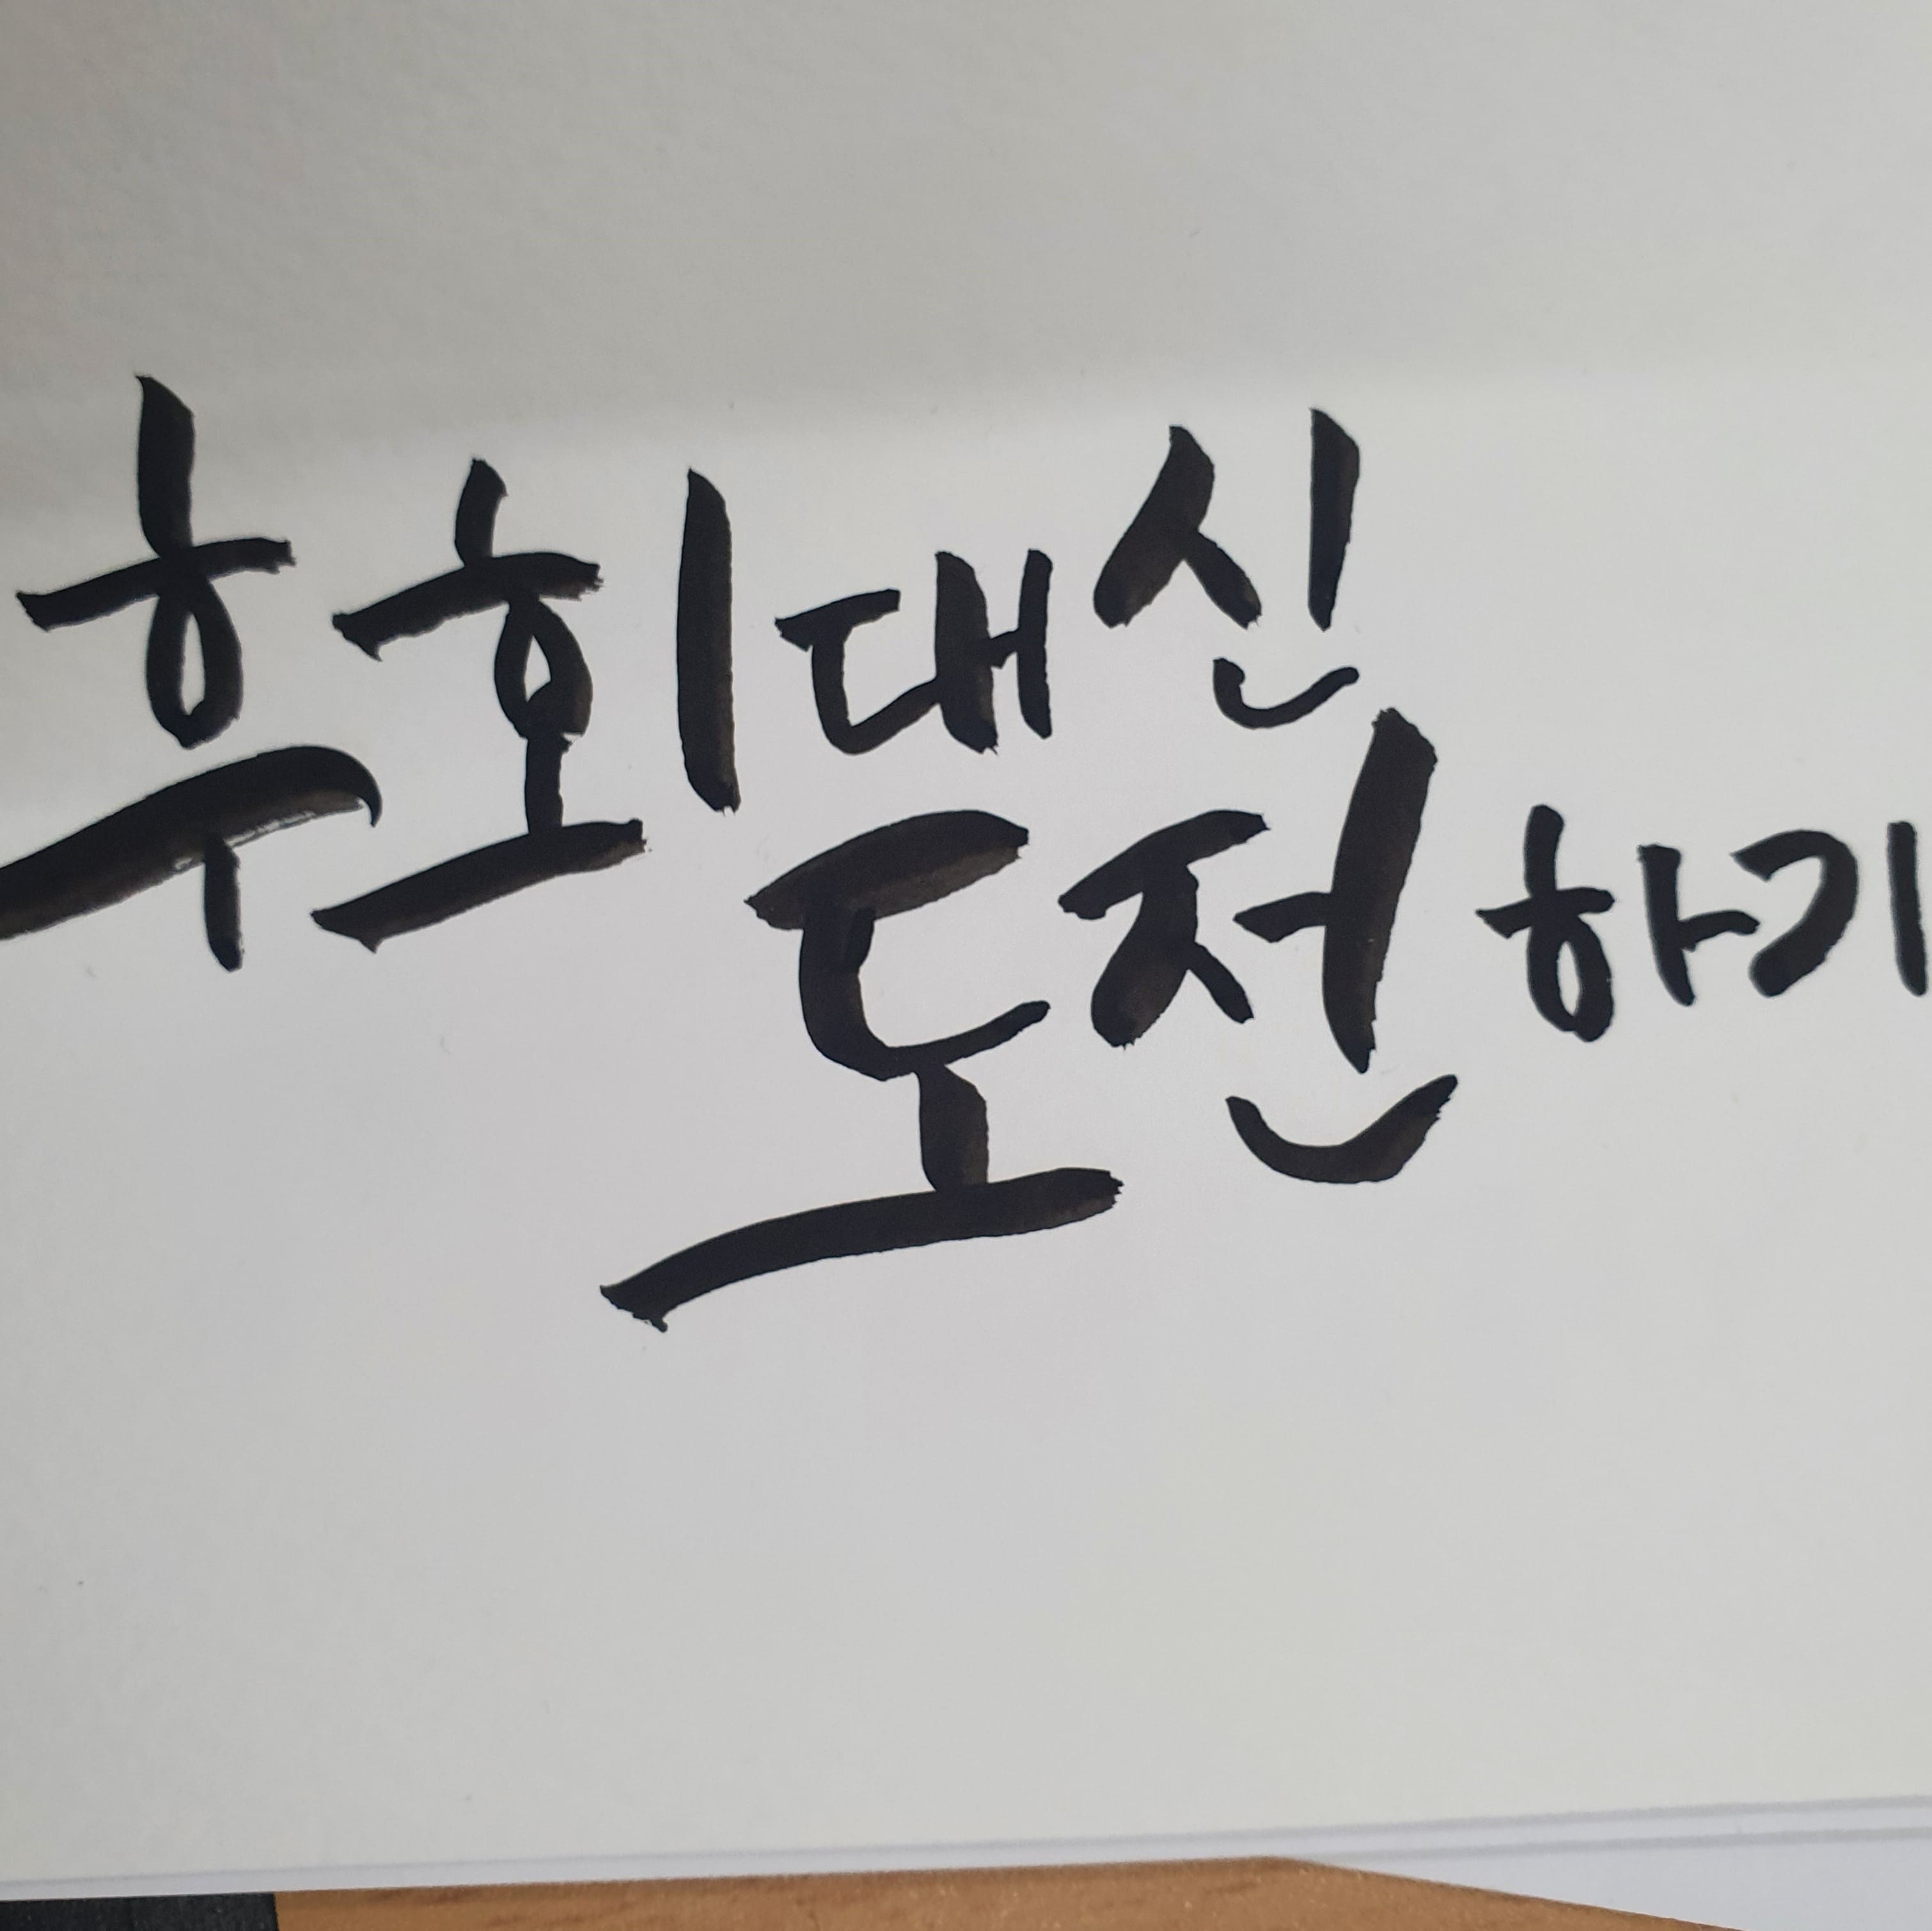 후회대신
도전하기